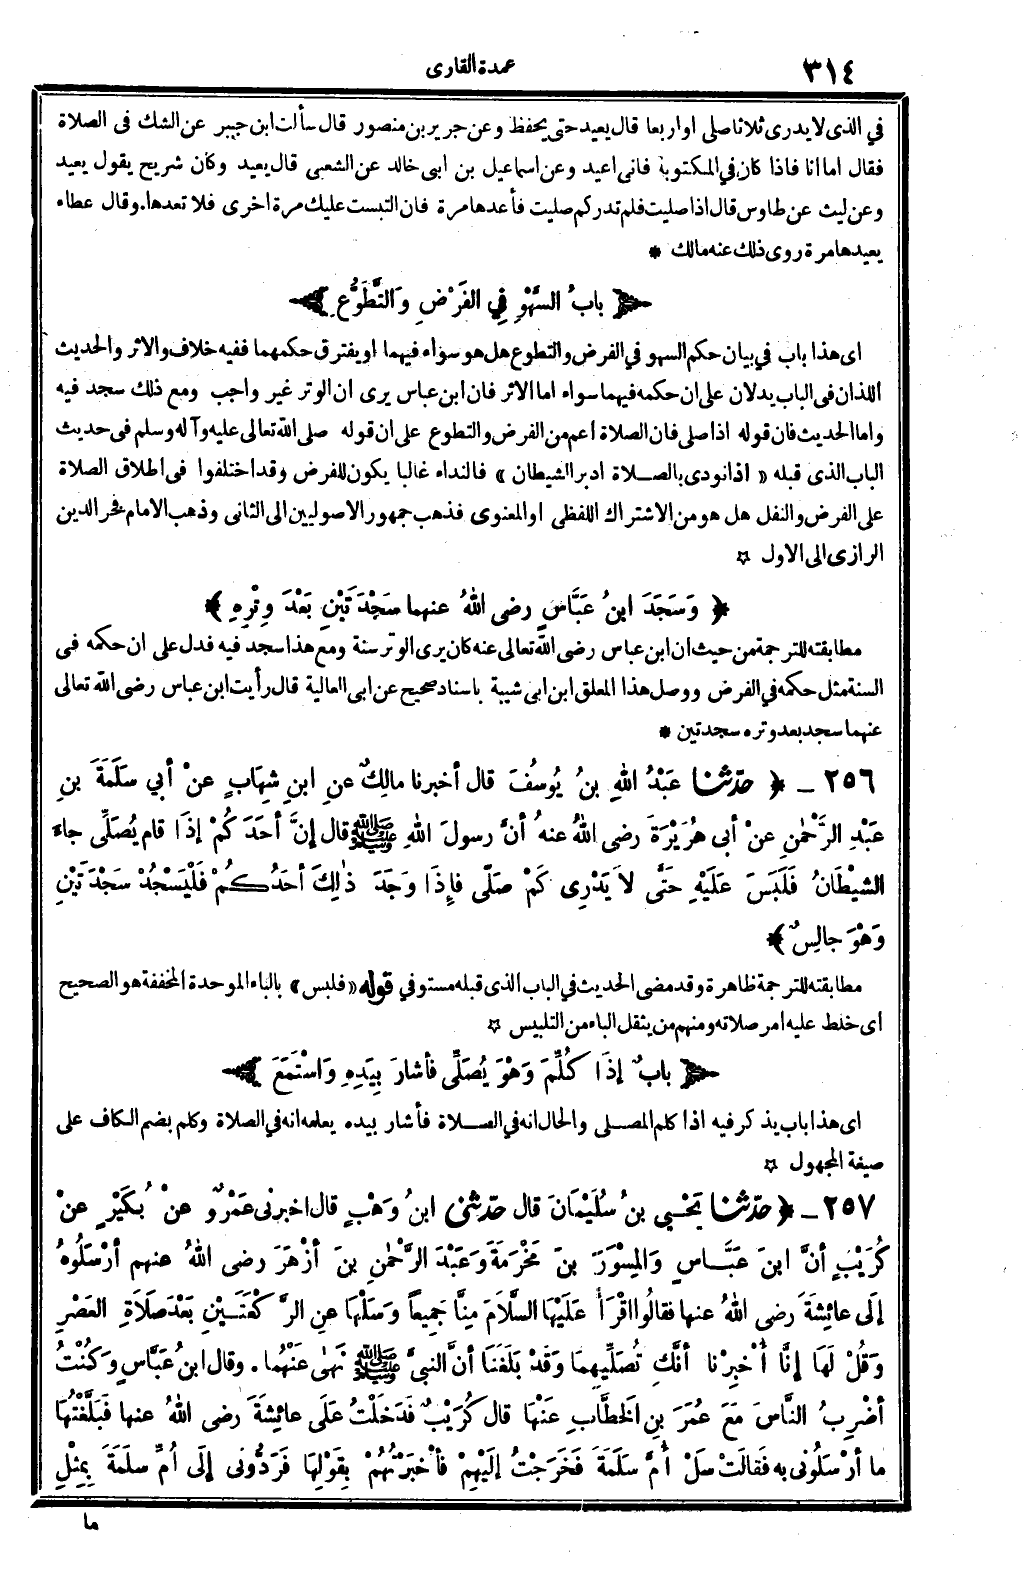 ٣١٤
عمدة القارى
في الذى لا يدرى ثلاثا صلى او اربعا قال يعيد حتى يحفظ وعن جرير بن منصور قال سألت ابن جبير عن الشك فى الصلاة
فقال اما انا فاذا كان في المكتوبة فانى اعيد وعن اسماعيل بن ابى خالد عن الشعبى قال يعيد وكان شريح يقول يعيد
وعن ليث عن طاوس قال اذا صليت فلم تدر كم صليت فأعدها مرة فان التبست عليك مرة اخرى فلا تعدها. وقال عطاء
يعيدها مرة روى ذلك عنه مالك *
﴿ بابُ السَّهْوِ فِي الفَرْضِ وَالتَّطَوُّعِ ﴾
اى هذا باب في بيان حكم السهو في الفرض والتطوع هل هو سواء فيهما او يفترق حكمهما ففيه خلاف والاثر والحديث
اللذان فى الباب يدلان على ان حكمه فيهما سواء اما الاثر فان ابن عباس يرى ان الوتر غير واجب ومع ذلك سجد فيه
واما الحديث فان قوله اذا صلى فان الصلاة اعم من الفرض والتطوع على ان قوله صلى الله تعالى عليه وآله وسلم فى حديث
الباب الذى قبله « اذا نودى بالصلاة ادبر الشيطان » فالنداء غالبا يكون للفرض وقد اختلفوا فى اطلاق الصلاة
على الفرض والنفل هل هو من الاشتراك اللفظى او المعنوى فذهب جمهور الاصوليين الى الثانى وذهب الامام فخر الدين
الرازى الى الاول ☆
﴿ وَسَجَدَ ابنُ عَبَّاسٍ رضى اللهُ عنهما سَجْدَتَيْنِ بَعْدَ وِتْرِهِ ﴾
مطابقته للترجمة من حيث ان ابن عباس رضى الله تعالى عنه كان يرى الوتر سنة ومع هذا سجد فيه فدل على ان حكمه فى
السنة مثل حكمه في الفرض ووصل هذا المعلق ابن ابى شيبة باسناد صحيح عن ابى العالية قال رأيت ابن عباس رضى الله تعالى
عنهما سجد بعد وتره سجدتين *
٢٥٦ – ﴿ حدّثنا عَبْدُ اللهِ بنُ يُوسُفَ قال أخبرنا مالِكٌ عنِ ابنِ شِهَابٍ عنْ أبي سَلَمَةَ بنِ
عَبْدِ الرَّحْمٰنِ عنْ أبى هُرَيْرَةَ رضى اللهُ عنهُ أنَّ رسولَ اللهِ ﷺ قال إنَّ أحَدَكُمْ إذَا قام يُصَلِّى جاءَ
الشيْطَانُ فَلَبَسَ عَلَيْهِ حَتَّى لاَ يَدْرِى كَمْ صَلَّى فإِذَا وَجَدَ ذٰلِكَ أحَدُكُمْ فَلْيَسْجُدْ سَجْدَتَيْنِ
وَهْوَ جالِسٌ ﴾
مطابقته للترجمة ظاهرة وقد مضى الحديث في الباب الذى قبله مستوفي قوله «فلبس» بالباء الموحدة المخففة هو الصحيح
اى خلط عليه امر صلاته ومنهم من يثقل الباء من التلبيس ☆
﴿ بابٌ إذَا كُلِّمَ وَهْوَ يُصَلِّى فأشارَ بِيَدِهِ وَاسْتَمَعَ ﴾
اى هذا باب يذكر فيه اذا كلم المصلى والحال انه في الصلاة فأشار بيده يعلمه انه في الصلاة وكلم بضم الكاف على
صيغة المجهول ☆
٢٥٧ – ﴿ حدّثنا يَحْيى بنُ سُلَيْمَانَ قال حدّثنى ابنُ وَهْبٍ قال اخبرنى عَمْرٌو عنْ بُكَيْرٍ عنْ
كُرَيْبٍ أنَّ ابنَ عَبَّاسٍ وَالمِسْوَرَ بنَ مَخْرَمَةَ وَعَبْدَ الرَّحْمٰنِ بنَ أزْهَرَ رضى اللهُ عنهم أرْسَلُوهُ
إلَى عائِشَةَ رضى اللهُ عنها فقالُوا اقْرَأْ عَلَيْهَا السَّلاَمَ مِنَّا جَمِيعاً وَسَلْهَا عنِ الرَّكْعَتَيْنِ بَعْدَ صَلَاةِ العَصْرِ
وَقُلْ لَهَا إنَّا أُخْبِرْنا أنَّكِ تُصَلِّيهِما وَقَدْ بَلَغَنَا أنَّ النبيَّ ﷺ نَهَى عَنْهُما. وقال ابنُ عَبَّاسٍ وَكُنْتُ
أضْرِبُ النَّاسَ مَعَ عُمَرَ بنِ الخَطَّابِ عَنْهَا قال كُرَيْبٌ فَدَخَلْتُ عَلَى عائِشَةَ رضى اللهُ عنها فَبَلَّغْتُهَا
ما أرْسَلُونى بِهِ فَقالَتْ سَلْ أُمَّ سَلَمَةَ فَخَرَجْتُ إلَيْهِمْ فأخْبَرْتُهُمْ بِقَوْلِهَا فَرَدُّونى إلَى أُمِّ سلَمَةَ بِمِثْلِ
ما